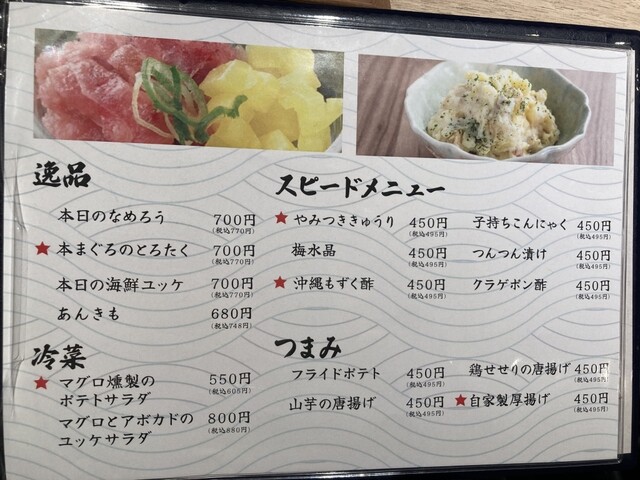 逸品
本日のなめろう 700円
(税込770円)
★本まぐろのとろたく 700円
(税込770円)
本日の海鮮ユッケ 700円
(税込770円)
あんきも 680円
(税込748円)
冷菜
★マグロ燻製の
ポテトサラダ 550円
(税込605円)
マグロとアボカドの
ユッケサラダ 800円
(税込880円)
スピードメニュー
★やみつききゅうり 450円
(税込495円)
梅水晶 450円
(税込495円)
★沖縄もずく酢 450円
(税込495円)
子持ちこんにゃく 450円
(税込495円)
つんつん漬け 450円
(税込495円)
クラゲポン酢 450円
(税込495円)
つまみ
フライドポテト 450円
(税込495円)
山芋の唐揚げ 450円
(税込495円)
鶏せせりの唐揚げ 450円
(税込495円)
★自家製厚揚げ 450円
(税込495円)